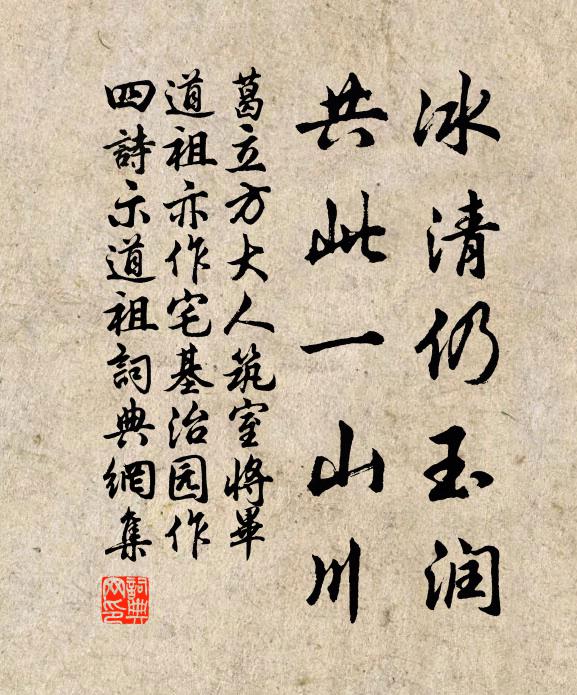 冰清仍玉润
共此一山川
葛立方大人筑室將畢
道祖亦作宅基治园作
四詩示道祖詞典網集
詞典网印